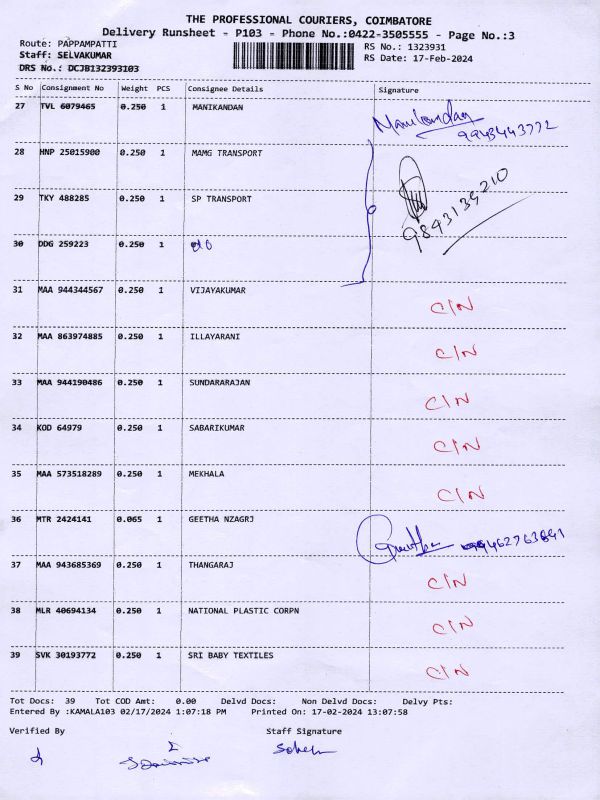 THE PROFESSIONAL COURIERS, COIMBATORE
Delivery Runsheet - P103 - Phone No.:0422-3505555 - Page No.:3
Route: PAPPAMPATTI
Staff: SELVAKUMAR
DRS No.: DCJB132393103
RS No.: 1323931
RS Date: 17-Feb-2024
S No Consignment No Weight PCS Consignee Details Signature
27 TVL 6079465 0.250 1 MANIKANDAN Manikandan
9943443772
28 HNP 25015900 0.250 1 MAMG TRANSPORT
29 TKY 488285 0.250 1 SP TRANSPORT 9843139210
30 DDG 259223 0.250 1
31 MAA 944344567 0.250 1 VIJAYAKUMAR C/N
32 MAA 863974885 0.250 1 ILLAYARANI C/N
33 MAA 944190486 0.250 1 SUNDARARAJAN C/N
34 KOD 64979 0.250 1 SABARIKUMAR C/N
35 MAA 573518289 0.250 1 MEKHALA C/N
36 MTR 2424141 0.065 1 GEETHA NZAGRJ
37 MAA 943685369 0.250 1 THANGARAJ C/N
38 MLR 40694134 0.250 1 NATIONAL PLASTIC CORPN C/N
39 SVK 30193772 0.250 1 SRI BABY TEXTILES C/N
Tot Docs: 39 Tot COD Amt: 0.00 Delvd Docs: Non Delvd Docs: Delvy Pts:
Entered By :KAMALA103 02/17/2024 1:07:18 PM Printed On: 17-02-2024 13:07:58
Verified By Staff Signature